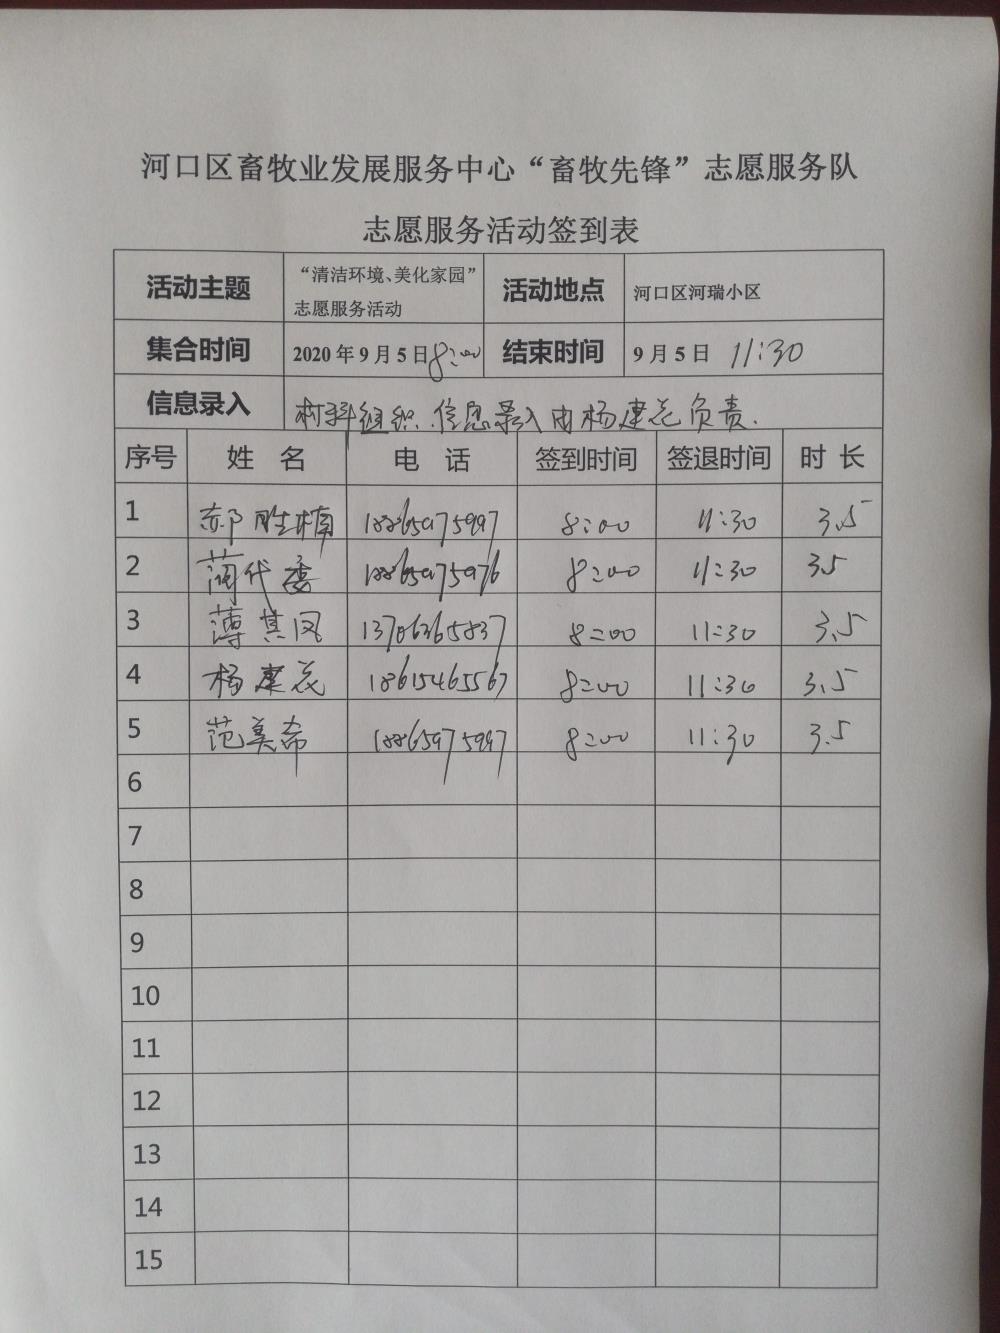 河口区畜牧业发展服务中心“畜牧先锋”志愿服务队
志愿服务活动签到表
活动主题 “清洁环境、美化家园” 志愿服务活动 活动地点 河口区河瑞小区
集合时间 2020年9月5日 8:00 结束时间 9月5日 11:30
信息录入 材料组织.信息录入由杨建花负责.
序号 姓 名 电 话 签到时间 签退时间 时 长
1 郝胜楠 18865975997 8:00 11:30 3.5
2 代 8:00 11:30 3.5
3 薄其凤 13706365837 8:00 11:30 3.5
4 杨建花 18615465567 8:00 11:30 3.5
5 范美希 8:00 11:30 3.5
6
7
8
9
10
11
12
13
14
15